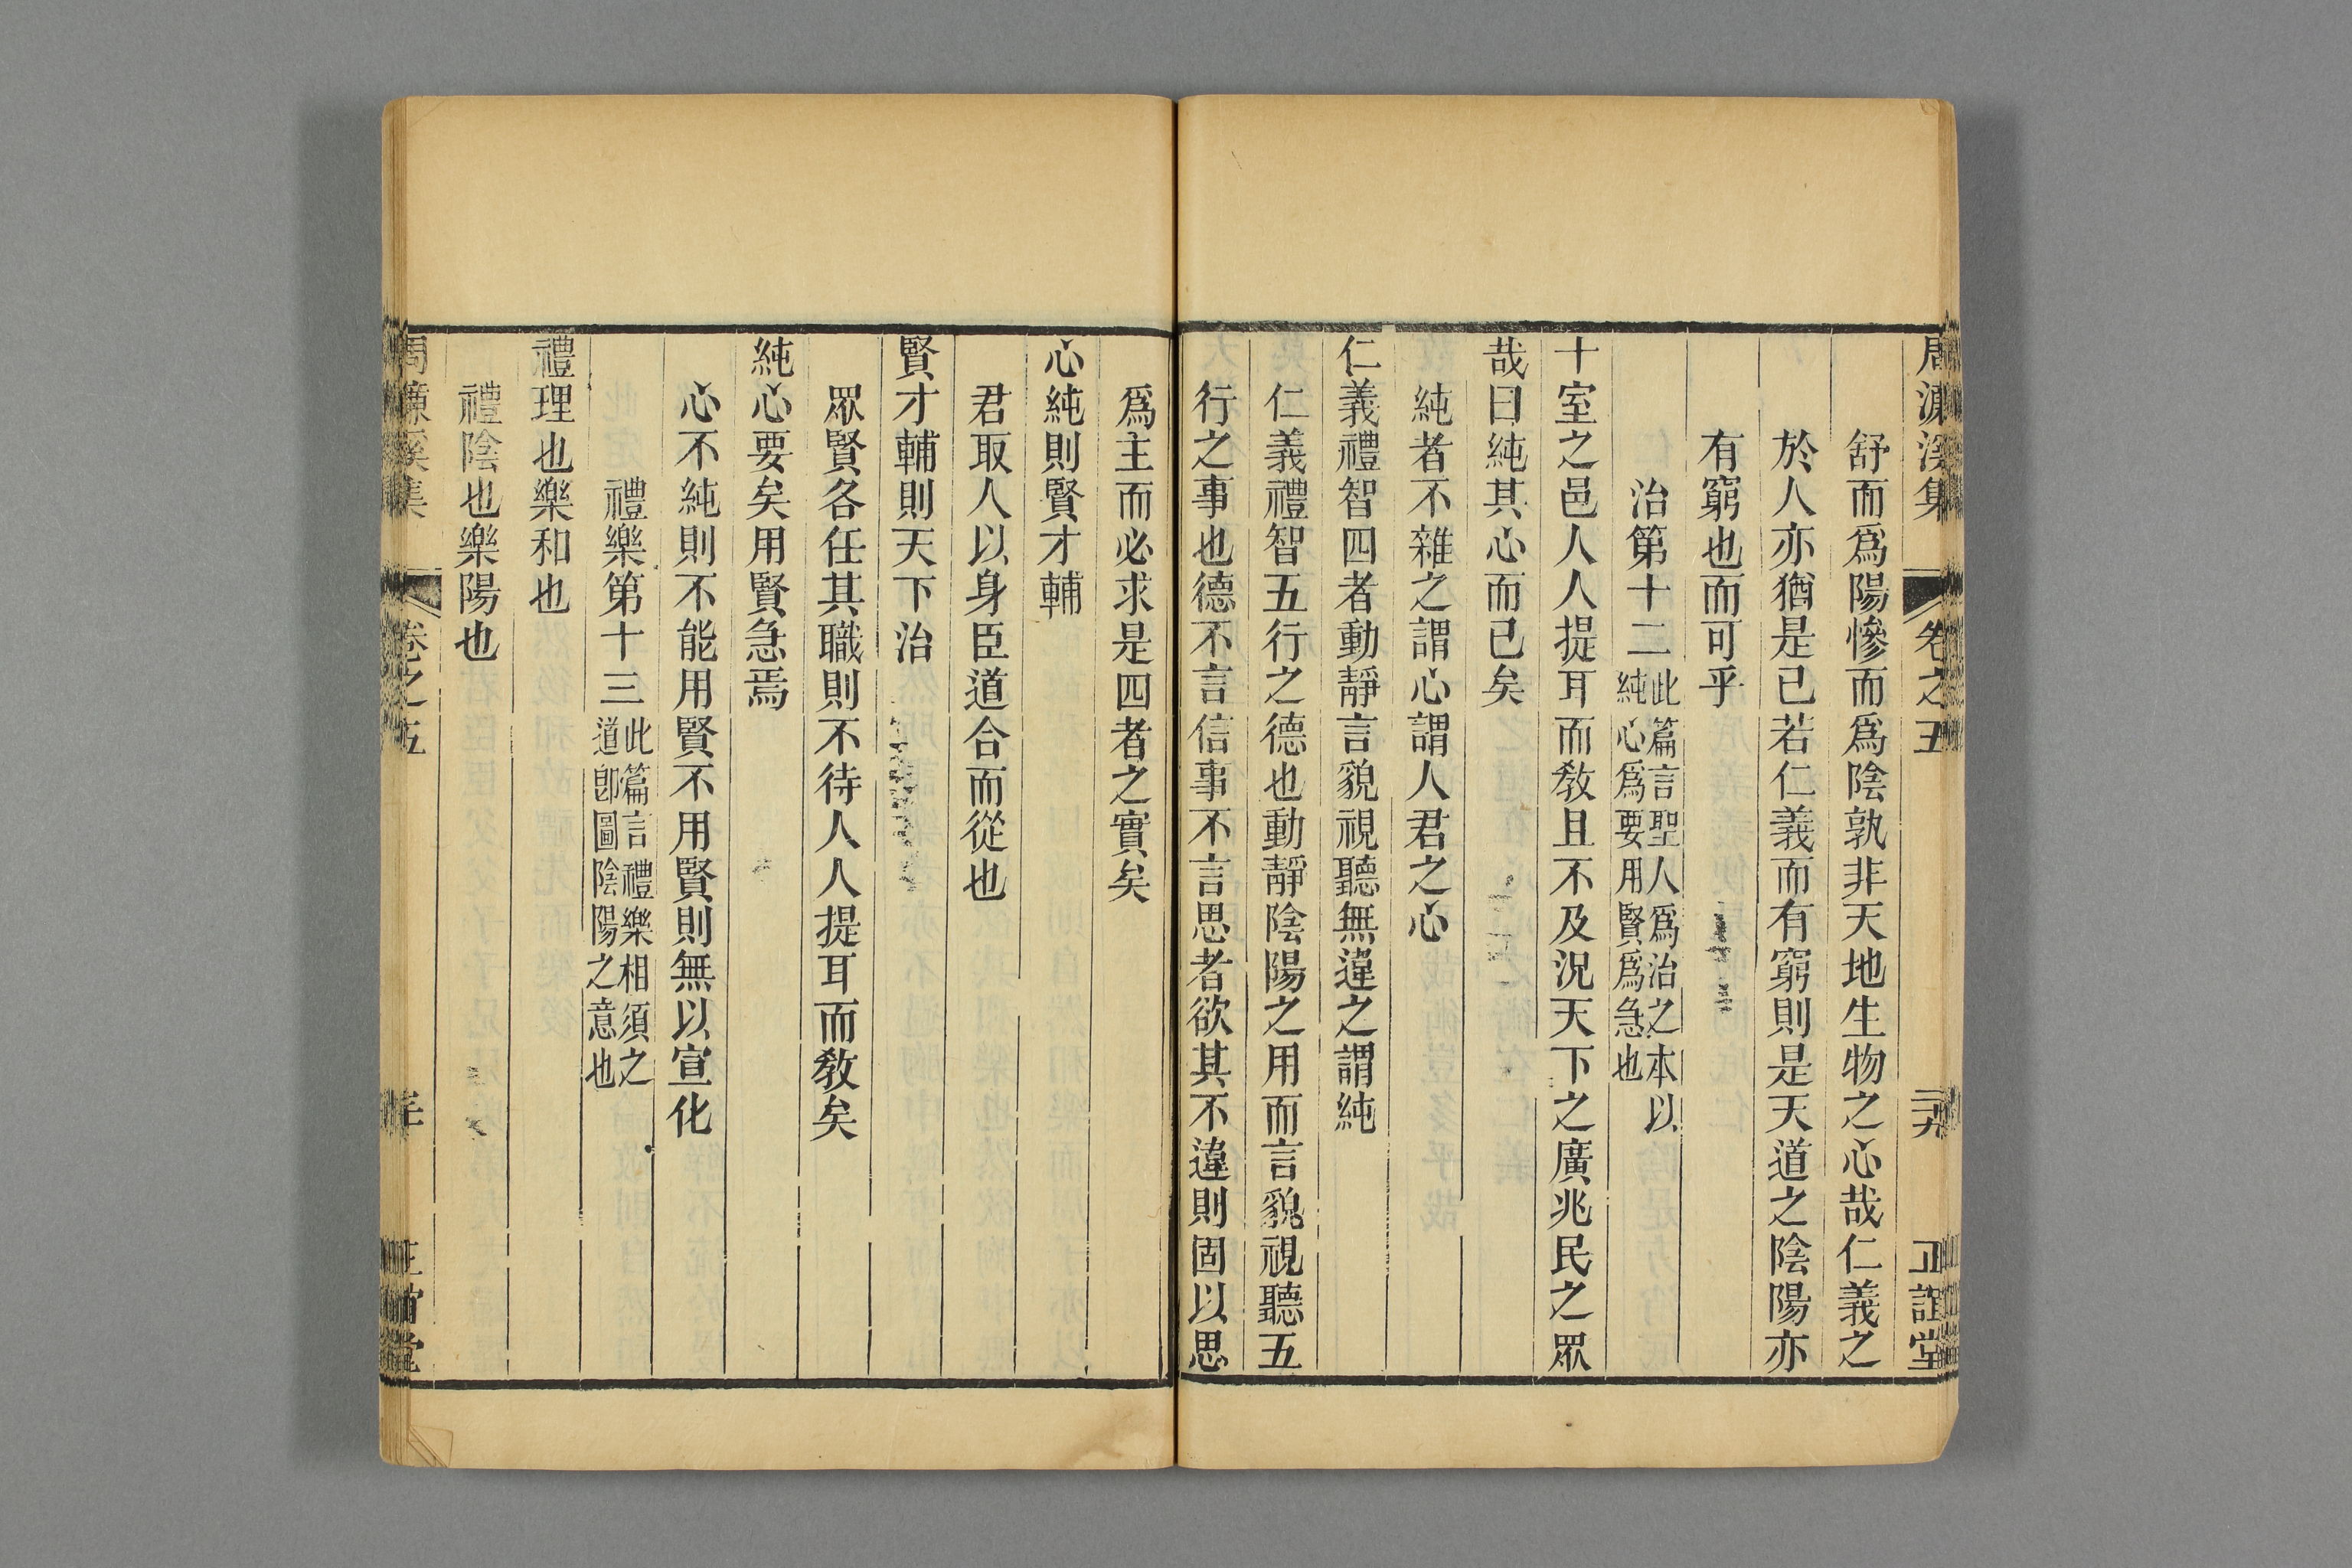 周濂溪集 卷之五 二九 正誼堂
舒而爲陽慘而爲陰孰非天地生物之心哉仁義之
於人亦猶是已若仁義而有窮則是天道之陰陽亦
有窮也而可乎
治第十二
此篇言聖人爲治之本以
純心爲要用賢爲急也
十室之邑人人提耳而敎且不及況天下之廣兆民之眾
哉曰純其心而已矣
純者不雜之謂心謂人君之心
仁義禮智四者動靜言貌視聽無違之謂純
仁義禮智五行之德也動靜陰陽之用而言貌視聽五
行之事也德不言信事不言思者欲其不違則固以思
爲主而必求是四者之實矣
心純則賢才輔
君取人以身臣道合而從也
賢才輔則天下治
眾賢各任其職則不待人人提耳而敎矣
純心要矣用賢急焉
心不純則不能用賢不用賢則無以宣化
禮樂第十三
此篇言禮樂相須之
道卽圖陰陽之意也
禮理也樂和也
禮陰也樂陽也
周濂溪集 卷之五 正誼堂